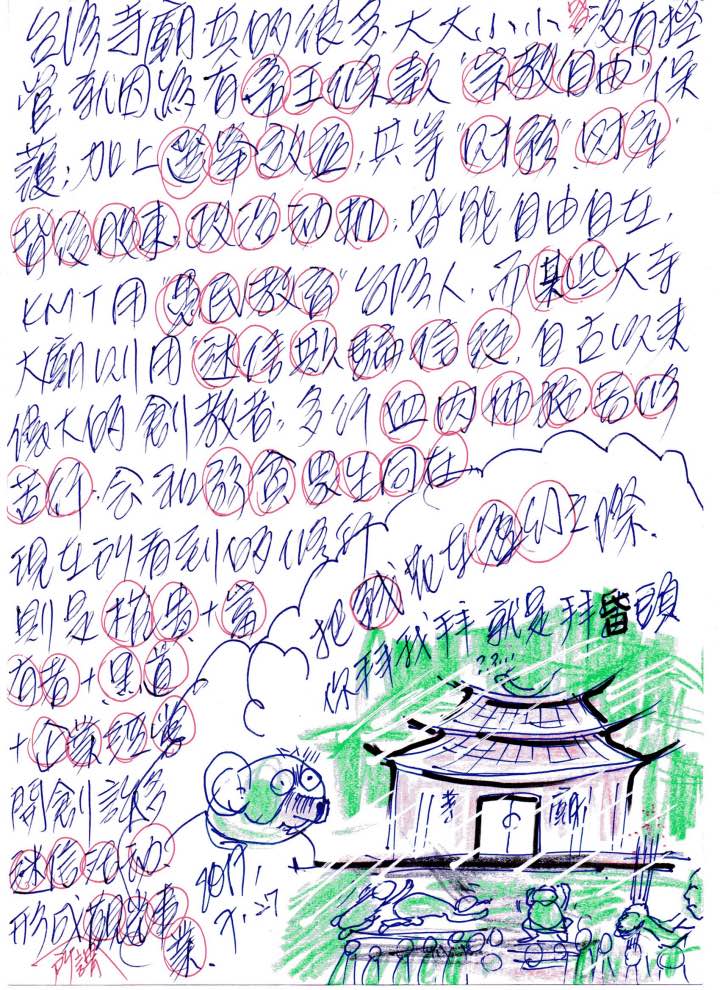 台灣寺廟真的很多大大小小皆沒有控
管,就因為有帝王條款"宗教自由"保
護;加上選舉效益;其等"財務"財產
背後股東、政治动机;皆能自由自在,
KMT用"愚民教育"台灣人,而某些大寺
大廟以則用"迷信欺騙信徒,自古以來
偉大的創教者;多行血肉佈施苦修
苦行,会和弱貧眾生同在
現在到看到的修行
則是權貴+富
有者+黑道
+企業經營
開創許多
迷信活动
形成廟業
所謂
業.
把我執在 之際.
你拜我拜就是拜骷頭
寺 廟
2017.
9.27